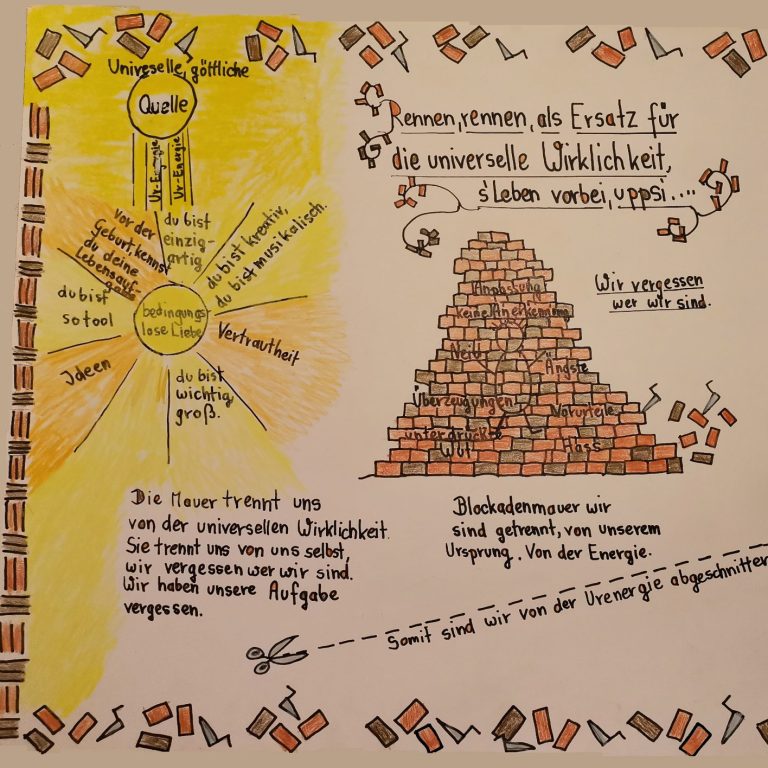 Univeselle, göttliche
Quelle
Ur-Energie
Ur-Energie
vor der
Geburt, kennst
du deine
Lebensauf-
gabe
du bist
einzig-
artig
du bist kreativ,
du bist musikalisch.
du bist
so tool
bedingungs-
lose Liebe
Vertrautheit
Ideen
du bist
wichtig,
groß.
Die Mauer trennt uns
von der universellen Wirklichkeit.
Sie trennt uns von uns selbst,
wir vergessen wer wir sind.
Wir haben unsere Aufgabe
vergessen.
Rennen, rennen, als Ersatz für
die universelle Wirklichkeit,
s'Leben vorbei, uppsi....
Wir vergessen
wer wir sind.
Anpassung
keine Anerkennung
Neid
Ängste
Überzeugungen
Vorurteile
unterdrückte
Wut
Hass
Blockadenmauer wir
sind getrennt, von unserem
Ursprung. Von der Energie.
Somit sind wir von der Urenergie abgeschnitten